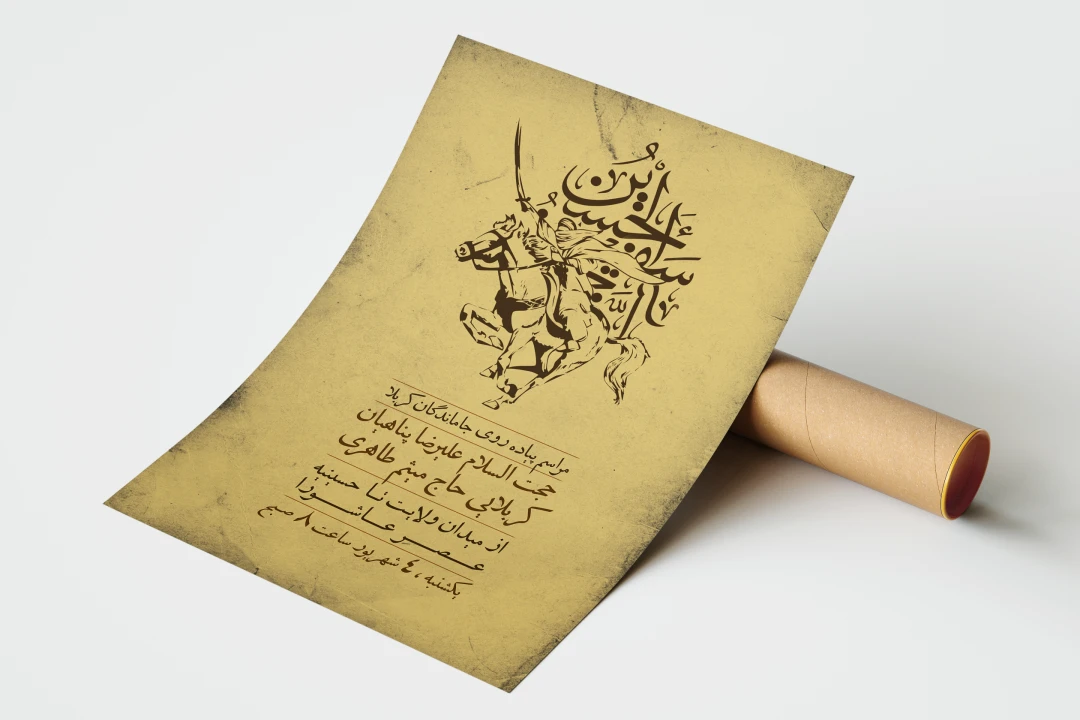 الحسين
مراسم پیاده روی جاماندگان کربلا
حجت السلام علیرضا پناهیان
کربلایی حاج میثم طاهری
از میدان ولایت تا حسینیه
عصر عاشورا
یکشنبه ، ٤ شهریور ساعت ٨ صبح